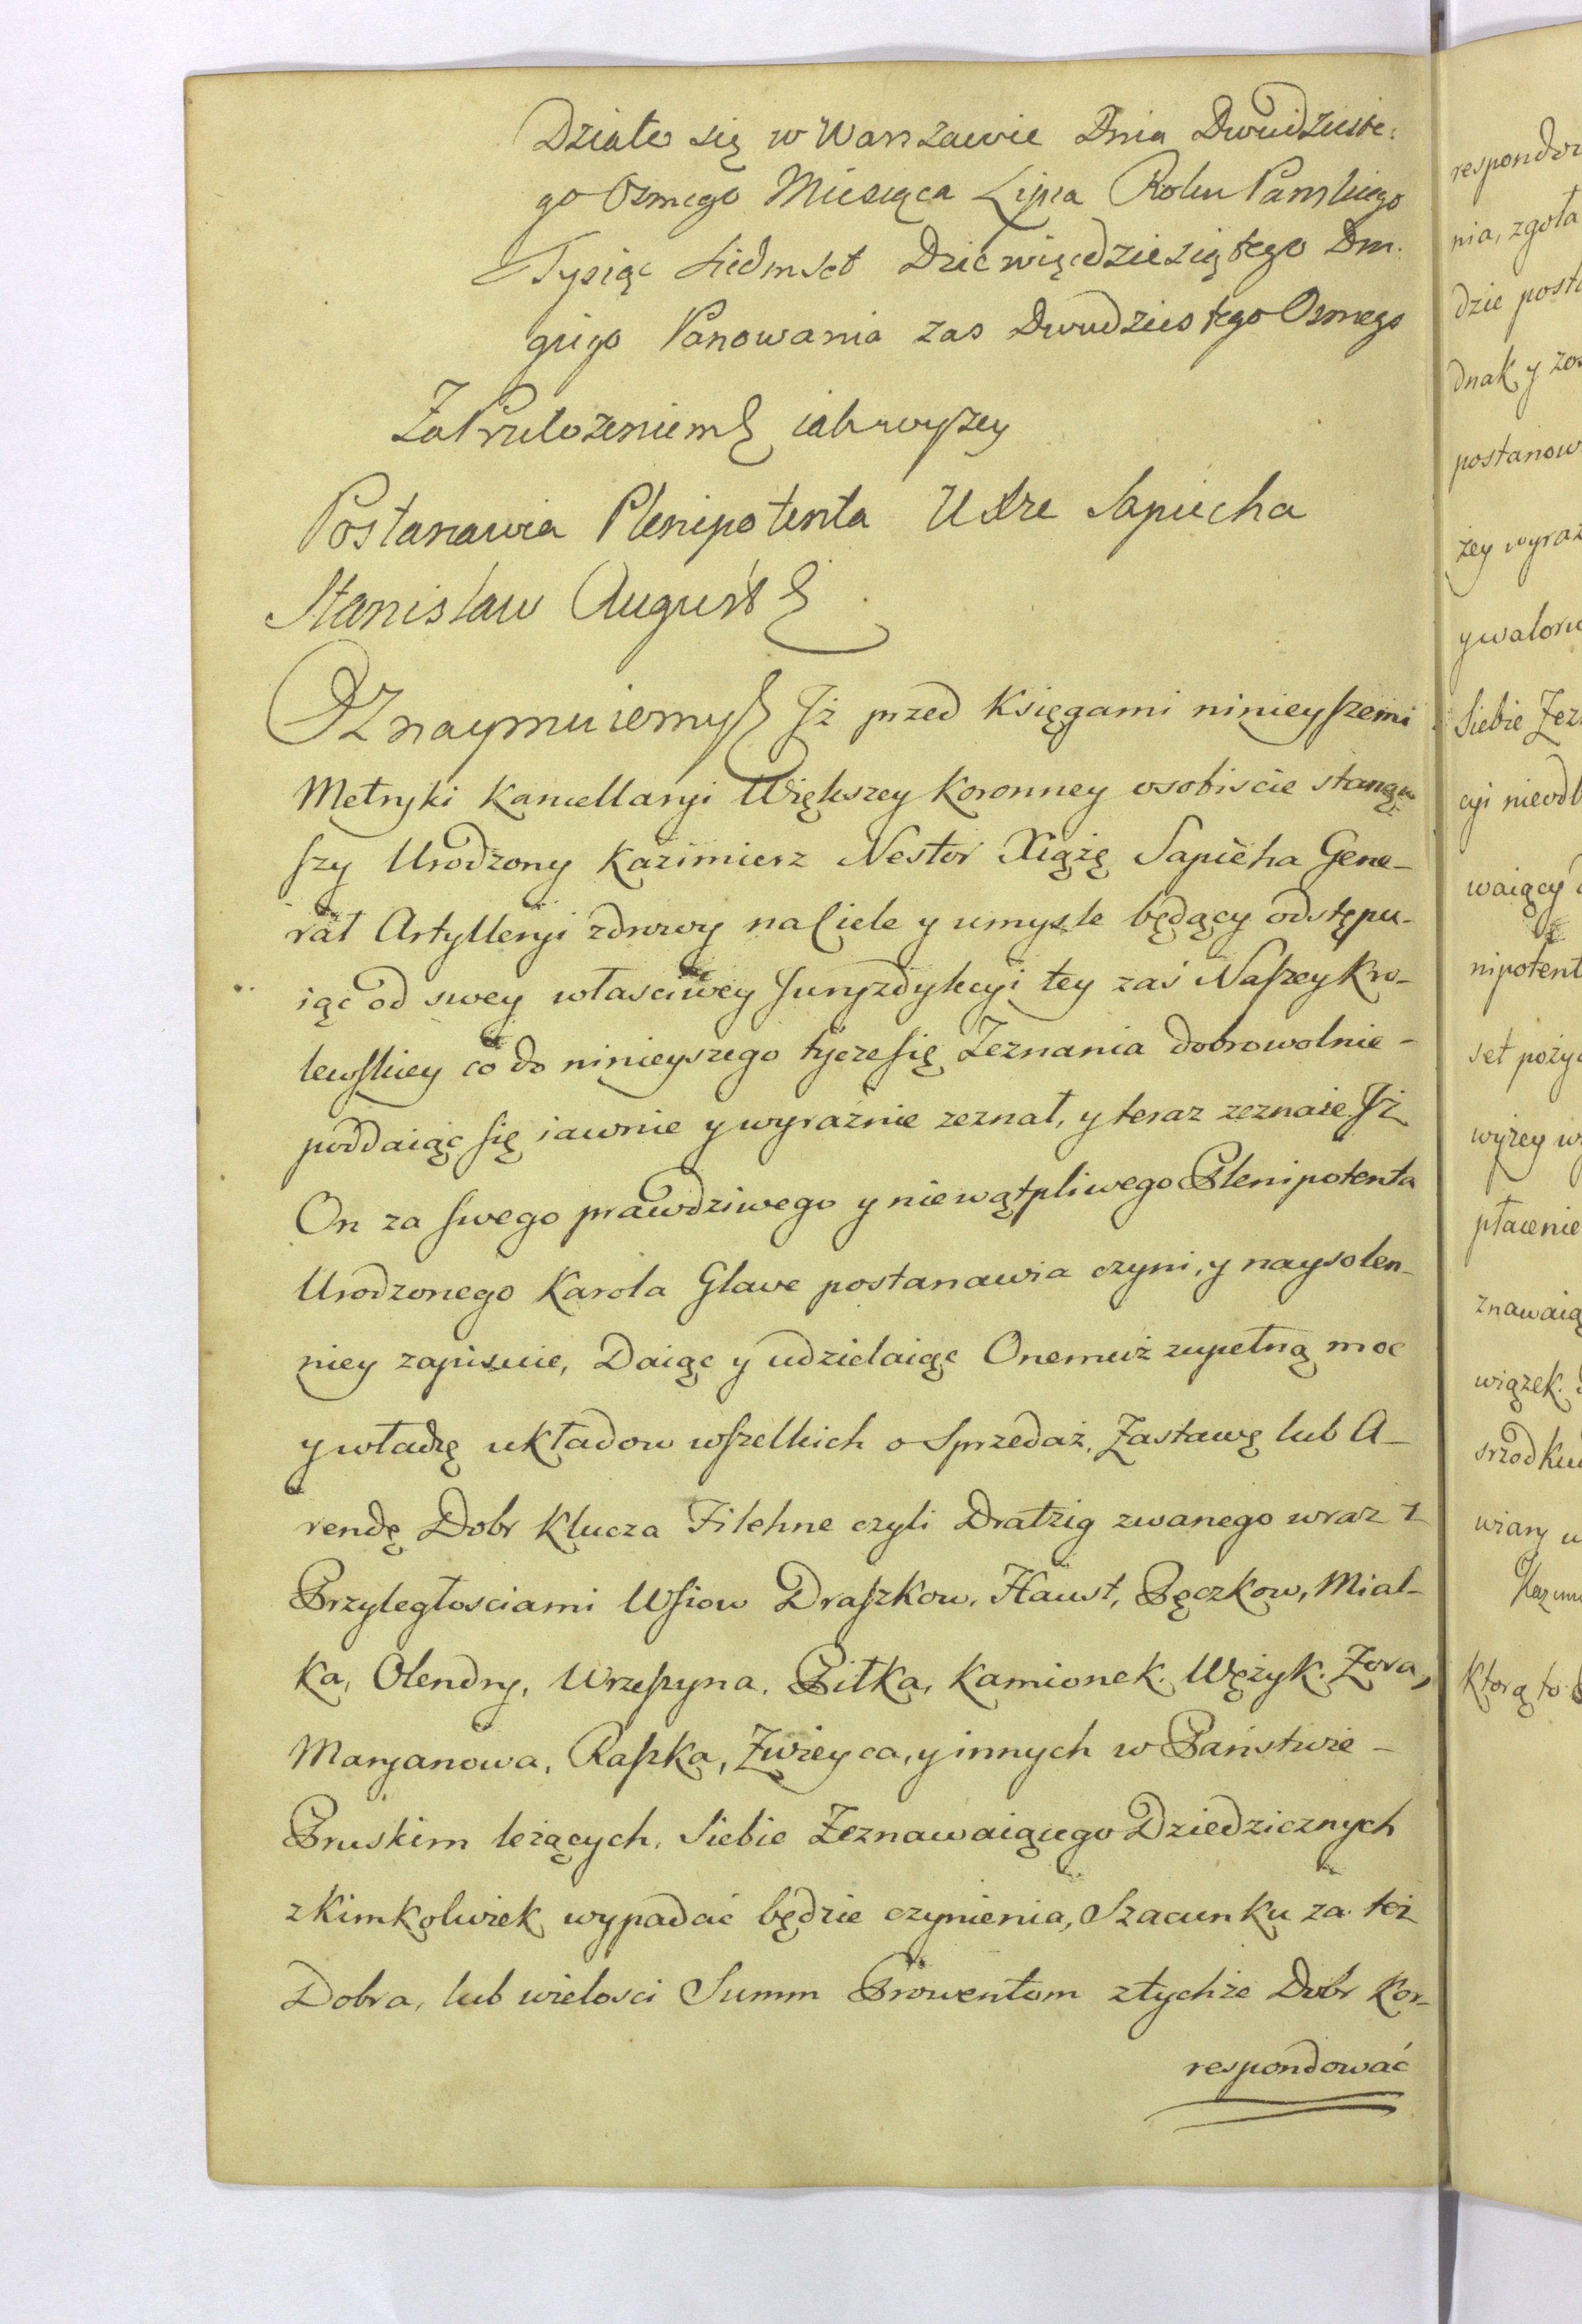 Działo się w Warszawie Dnia Dwudzieste:
go Osmego Miesiąca Lipca Roku Pańskiego
Tysiąc Siedmset Dziewięcdziesiątego Dru:
giego Panowania zas Dwudziestego Osmego
Za Przełożeniem iak wyszey
Postanawia Plenipotenta Udze Sapiecha
Stanisław August
Oznaymuiemy Jż przed Księgami ninieyszemi
Metryki Kancellaryi Większey Koronney osobiscie stanąw
szy Urodzony Kazimierz Nestor Xiążę Sapieha Gene-
rał Artylleryi zdrowy na Ciele y umysle będący odstępu-
iąc od swey własciwey Juryzdykcyi tey zaś Naszey Kro-
lewskiey co do ninieyszego tycze się Zeznania dobrowolnie -
poddaiąc się iawnie y wyraźnie zeznał, y teraz zeznaie Jż
On za swego prawdziwego y niewątpliwego Plenipotenta
Urodzonego Karola Glave postanawia czyni, y naysolen-
niey zapisuie, Daiąc y udzielaiąc Onemuż zupełną moc
y władzę układow wszelkich o Sprzedaż, Zastawę lub A-
rendę Dobr Klucza Filehne czyli Dratzig zwanego wraz z
Przyległosciami Wsiow Draszkow, Haust, Pęczkow, Mial-
ka, Olendry, Wrzeszyna, Piłka, Kamionek, Wężyk, Zora,
Maryanowa, Raszka, Zwieyca, y innych w Państwie -
Pruskim leżących, Siebie Zeznawaiącego Dziedzicznych
z Kimkolwiek wypadać będzie czynienia, Szacunku za też
Dobra, lub wielosci Summ Prowentom z tychże Dobr Kor-
respondować
nia, zgoła
dnak y
postanow
żey wyraż
Siebie
waiący
nipotent
set
wyżey
płacenie
znawaią
wiązek.
wiary
Którą to